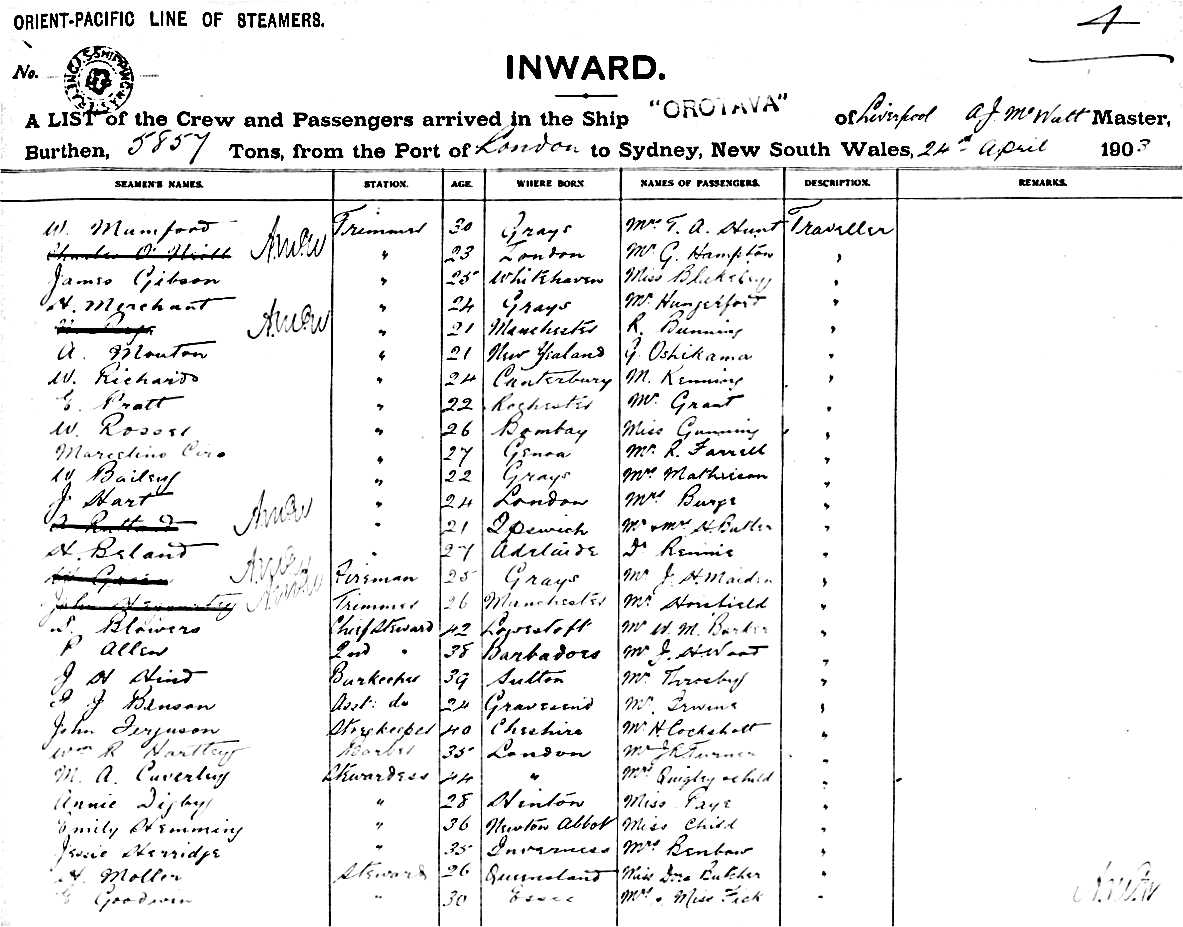 ORIENT-PACIFIC LINE OF STEAMERS.
4
No.
INWARD.
A LIST of the Crew and Passengers arrived in the Ship "OROTAVA" of Liverpool A J McWatt Master,
Burthen, 5857 Tons, from the Port of London to Sydney, New South Wales, 24th April 1903
SEAMEN'S NAMES. STATION. AGE. WHERE BORN NAMES OF PASSENGERS. DESCRIPTION. REMARKS.
W. Mumford Trimmer 30 Grays Mrs T. A. Hunt Traveller
Charles O' " 23 London Mr G. Hampton "
James Gibson " 25 Whitehaven Miss "
H. Merchant " 24 Grays Mr Hungerfort "
" 21 Manchester R. Bunning "
A. Mouton " 21 New Zealand Oshikama "
W. Richards " 24 Canterbury M. Kenning "
E. Pratt " 22 Rochester Mr Grant "
W. Rosser " 26 Bombay Miss Gunning "
Marcelino Ciro " 27 Genoa Mr R. Farrell "
W Bailey " 22 Grays Mrs Mathieson "
J. Hart " 24 London Mrs Burge "
" 21 Ipswich Mr & Mrs H. Butler "
H. Beland " 27 Adelaide Dr Rennie "
Green Fireman 25 Grays Mr J. H Maiden "
John Trimmer 26 Manchester Mr "
Blowers Chief Steward 42 Lowestoft Mr W. M. Barker "
Allen 2nd " 38 Barbadoes Mr J. H Wood "
J H Hind Barkeeper 39 Sutton Mr Throsby "
J Benson Asst: do 24 Gravesend Mr Irwine "
John Ferguson Storekeeper 40 Cheshire Mr H Cockshott "
Wm R Hartley Barber 35 London Mr J R Turner "
M. A. Caverley Stewardess 44 " Mrs Quigley & child "
Annie Digby " 28 Hinton Miss Faye "
Emily Hemming " 36 Newton Abbot Miss Child "
Jessie Herridge " 35 Inverness Mrs Benbow "
H. Moller Steward 26 Queensland Miss Dora Butcher "
E Goodwin " 30 Essex Miss Fick "